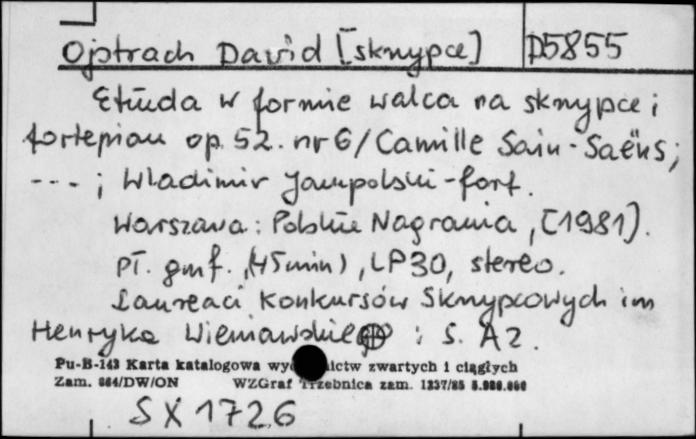 Ojstrach David [skrzypce] D5855
Etiuda w formie walca na skrzypce i
fortepian op. 52. nr 6 / Camille Sain-Saëns;
--- ; Wladimir Jampolski - fort.
Warszawa: Polskie Nagrania, [1981].
Pł. gmf., (45 min), LP30, stereo.
Laureaci Konkursów Skrzypcowych im
Henryka Wieniawskiego ; S. A2.
Pu-B-143 Karta katalogowa wictw zwartych i ciągłych
Zam. 864/DW/ON WZGraf Trzebnica zam. 1237/85
SX 1726